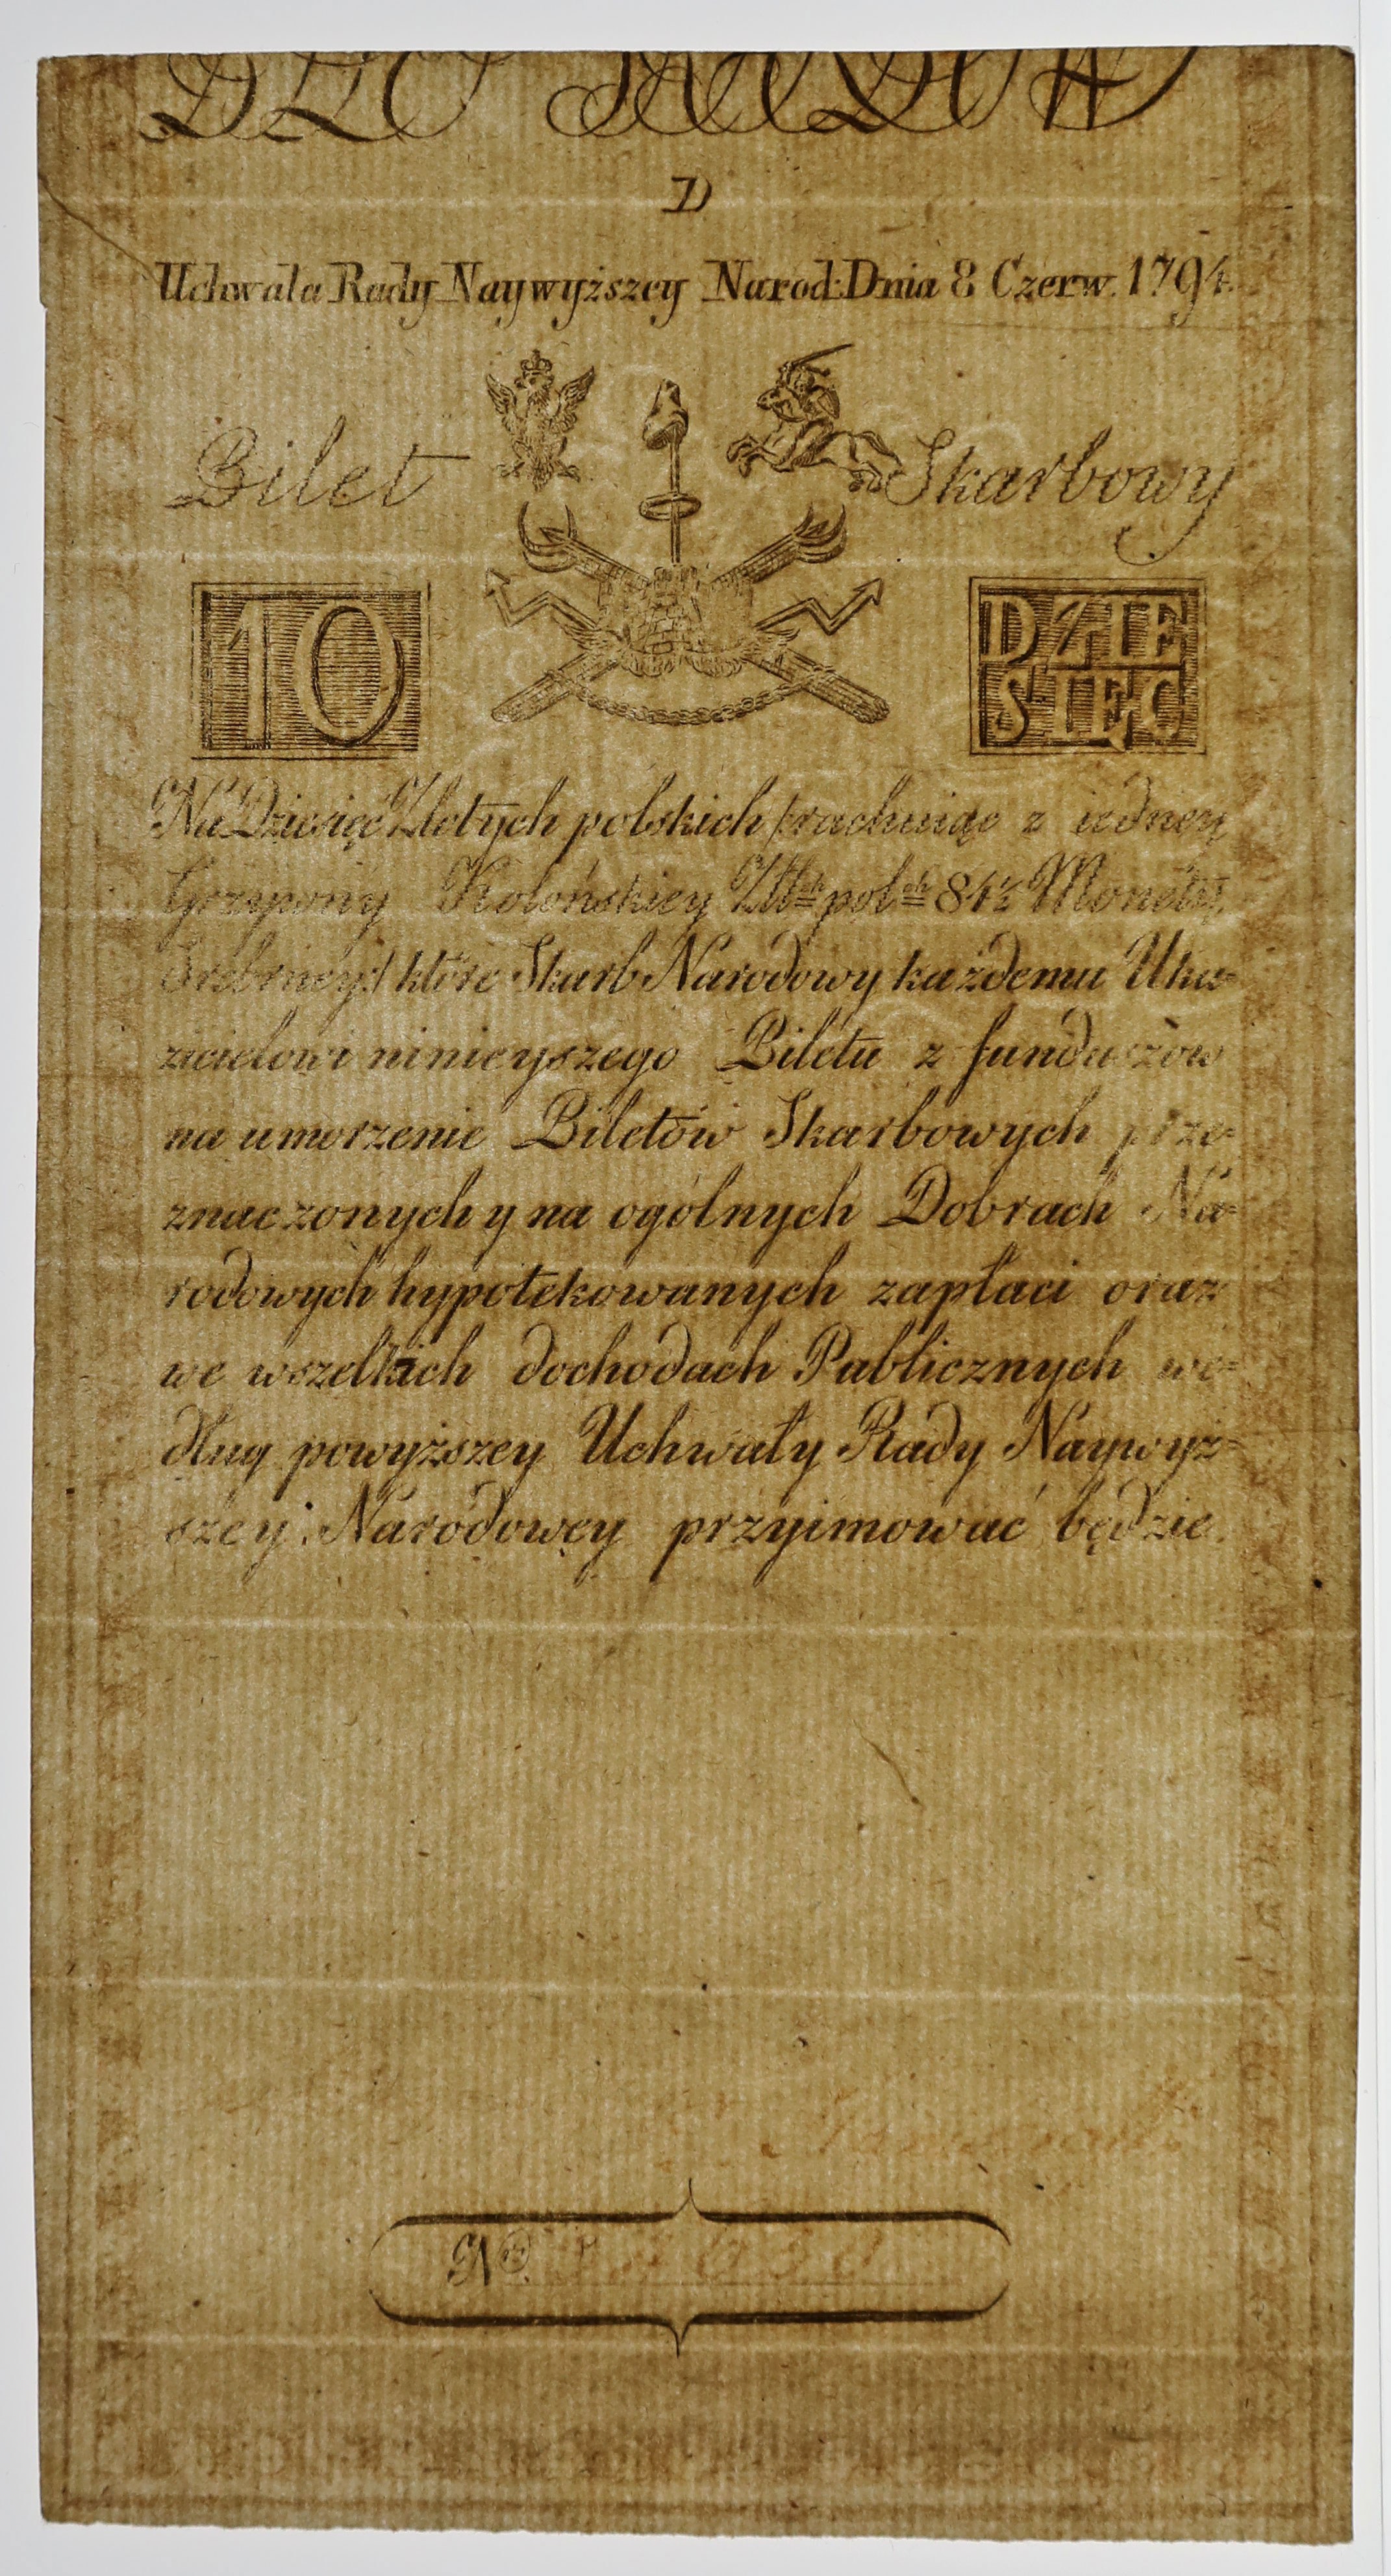 D
Uchwała Rady Naywyższey Narod: Dnia 8 Czerw. 1794.
Bilet Skarbowy
10 DZIE
SIĘĆ
Na Dziesięć Złotych polskich /:rachuiąc z iedney
Grzywny Kolońskiey Zł:ch pol:ch 84½ Monety
Srebrney:/ które Skarb Narodowy każdemu Uka=
zicielowi ninieyszego Biletu z funduszów
na umorzenie Biletów Skarbowych prze=
znaczonych y na ogólnych Dobrach Na=
rodowych hypotekowanych zapłaci oraz
we wszelkich dochodach Publicznych we=
dług powyższey Uchwały Rady Naywyż=
szey Narodowey przyimować będzie.
No.